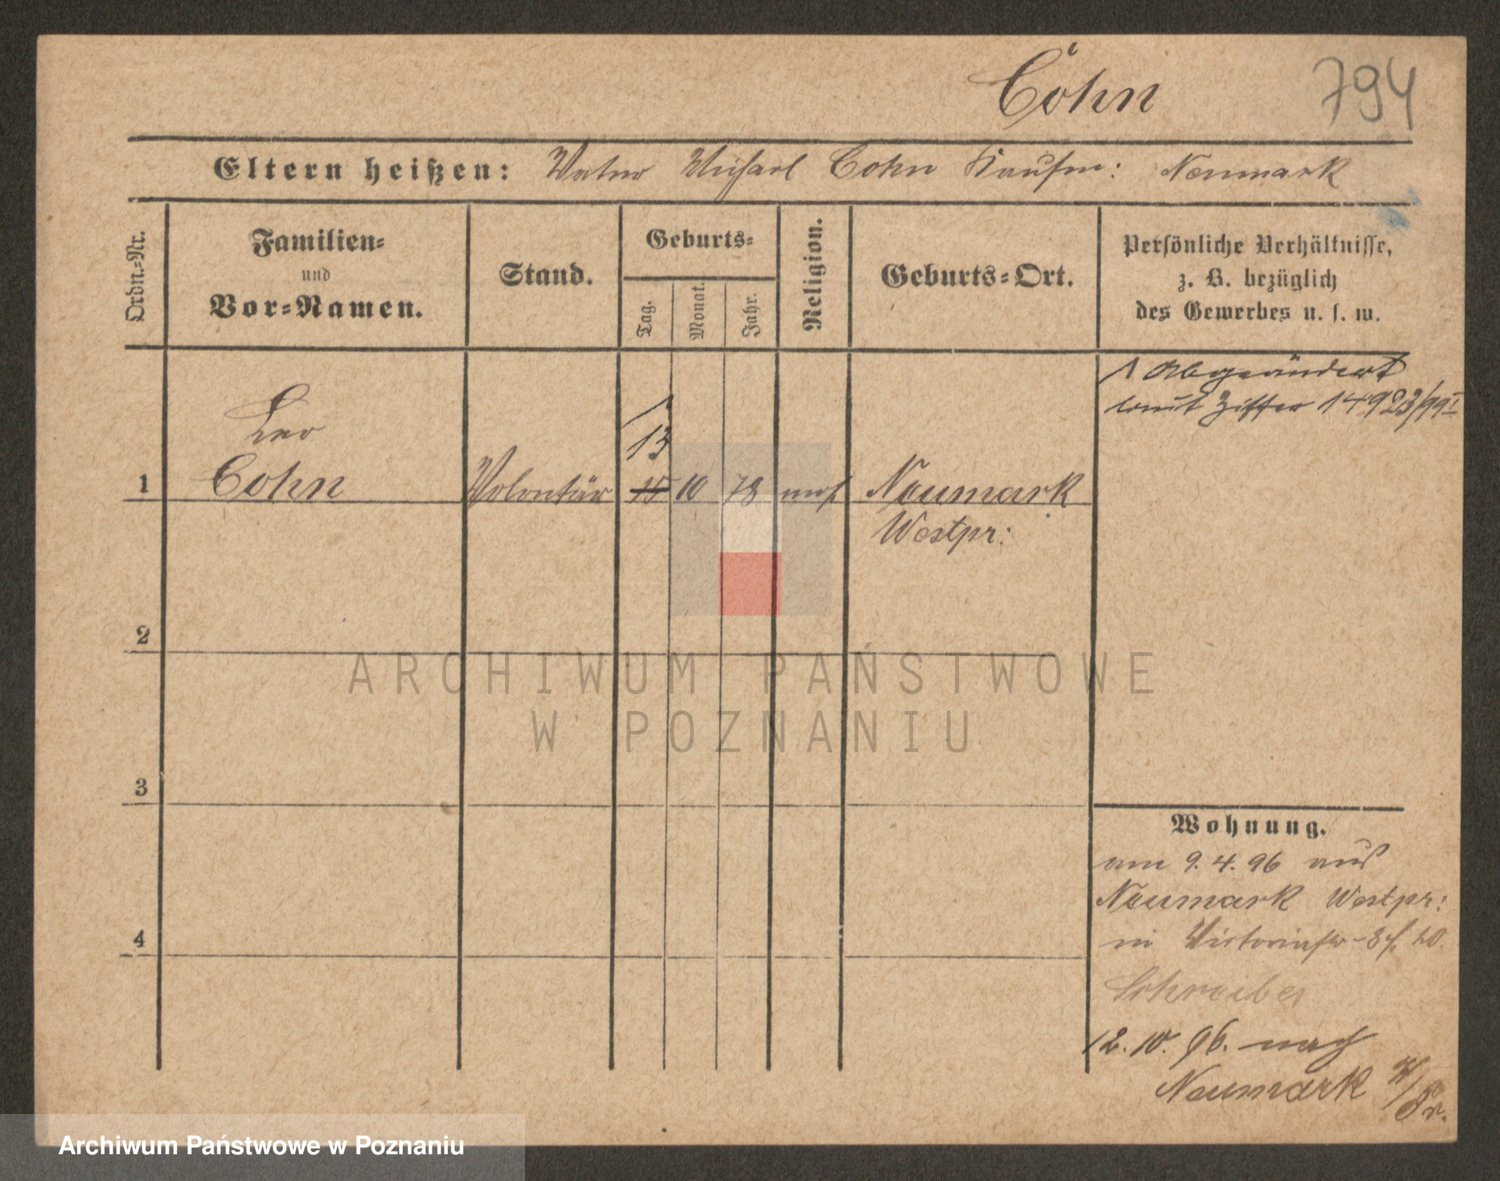 Cohn
794
Eltern heißen: Vater Michael Cohn Kaufm: Neumark
Ordn.-Nr.
Familien-
und
Vor-Namen.
Stand.
Geburts-
Tag.
Monat.
Jahr.
Religion.
Geburts-Ort.
Persönliche Verhältnisse,
z. B. bezüglich
des Gewerbes u. s. w.
1 Abgeändert
laut Ziffer 14923/99 I
Leo
13
1 Cohn Volontär 15 10 78 mos Neumark
Westpr:
2
3
4
Wohnung.
am 9.4.96 aus
Neumark Westpr:
in Victoriastr 20.
Schreiber
12.10.96. nach
Neumark W/Pr.
ARCHIWUM PAŃSTWOWE
W POZNANIU
Archiwum Państwowe w Poznaniu